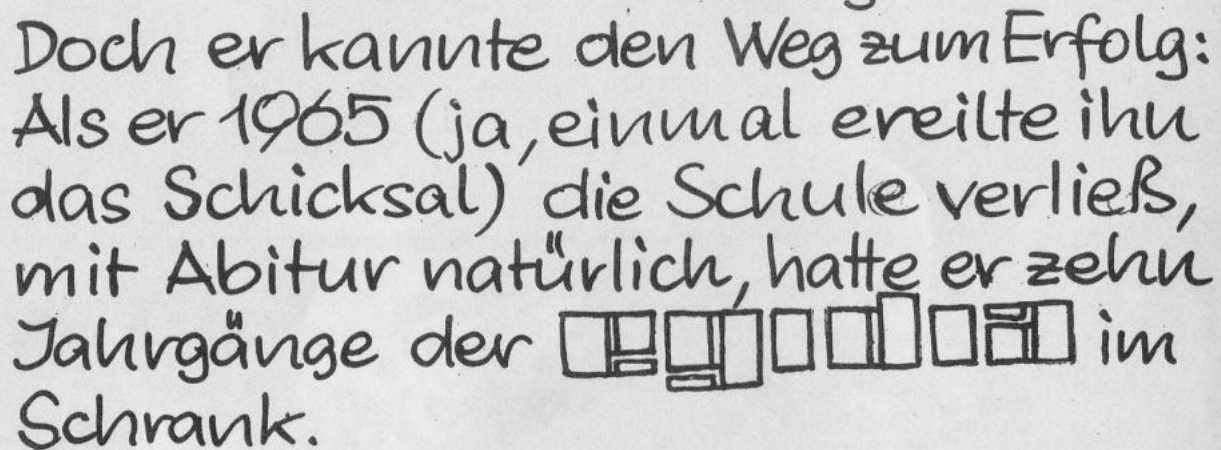 Doch er kannte den Weg zum Erfolg:
Als er 1965 (ja, einmal ereilte ihn
das Schicksal) die Schule verließ,
mit Abitur natürlich, hatte er zehn
Jahrgänge der im
Schrank.